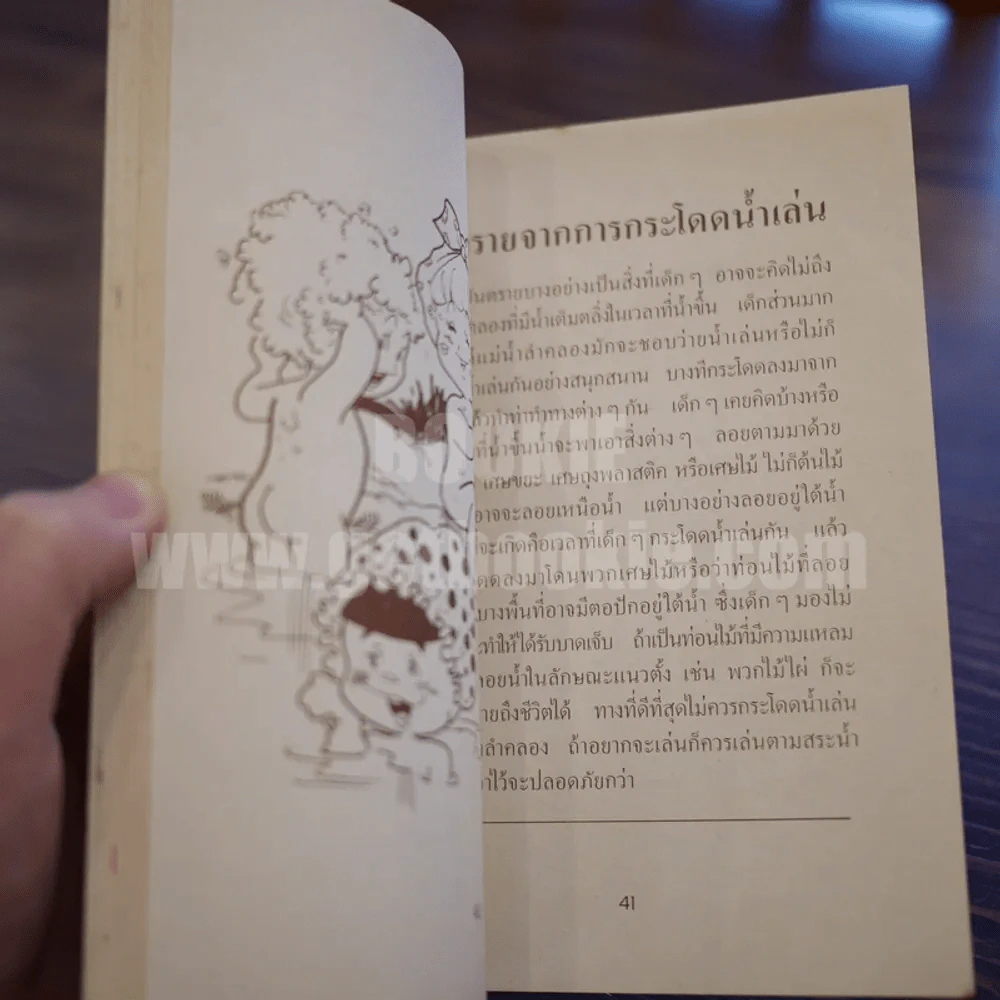 รายจากการกระโดดน้ำเล่น
นตรายบางอย่างเป็นสิ่งที่เด็ก ๆ อาจจะคิดไม่ถึง
คลองที่มีน้ำเต็มตลิ่งในเวลาที่น้ำขึ้น เด็กส่วนมาก
แม่น้ำลำคลองมักจะชอบว่ายน้ำเล่นหรือไม่ก็
เล่นกันอย่างสนุกสนาน บางทีกระโดดลงมาจาก
ล้วทำท่าทำทางต่าง ๆ กัน เด็ก ๆ เคยคิดบ้างหรือ
ที่น้ำขึ้นน้ำจะพาเอาสิ่งต่าง ๆ ลอยตามมาด้วย
เศษขยะ เศษถุงพลาสติค หรือเศษไม้ ไม่ก็ต้นไม้
อาจจะลอยเหนือน้ำ แต่บางอย่างลอยอยู่ใต้น้ำ
จะเกิดคือเวลาที่เด็ก ๆ กระโดดน้ำเล่นกัน แล้ว
ดดลงมาโดนพวกเศษไม้หรือว่าท่อนไม้ที่ลอย
บางพื้นที่อาจมีตอปักอยู่ใต้น้ำ ซึ่งเด็ก ๆ มองไม่
ะทำให้ได้รับบาดเจ็บ ถ้าเป็นท่อนไม้ที่มีความแหลม
ลอยน้ำในลักษณะแนวตั้ง เช่น พวกไม้ไผ่ ก็จะ
ายถึงชีวิตได้ ทางที่ดีที่สุดไม่ควรกระโดดน้ำเล่น
ลำคลอง ถ้าอยากจะเล่นก็ควรเล่นตามสระน้ำ
าไว้จะปลอดภัยกว่า
41